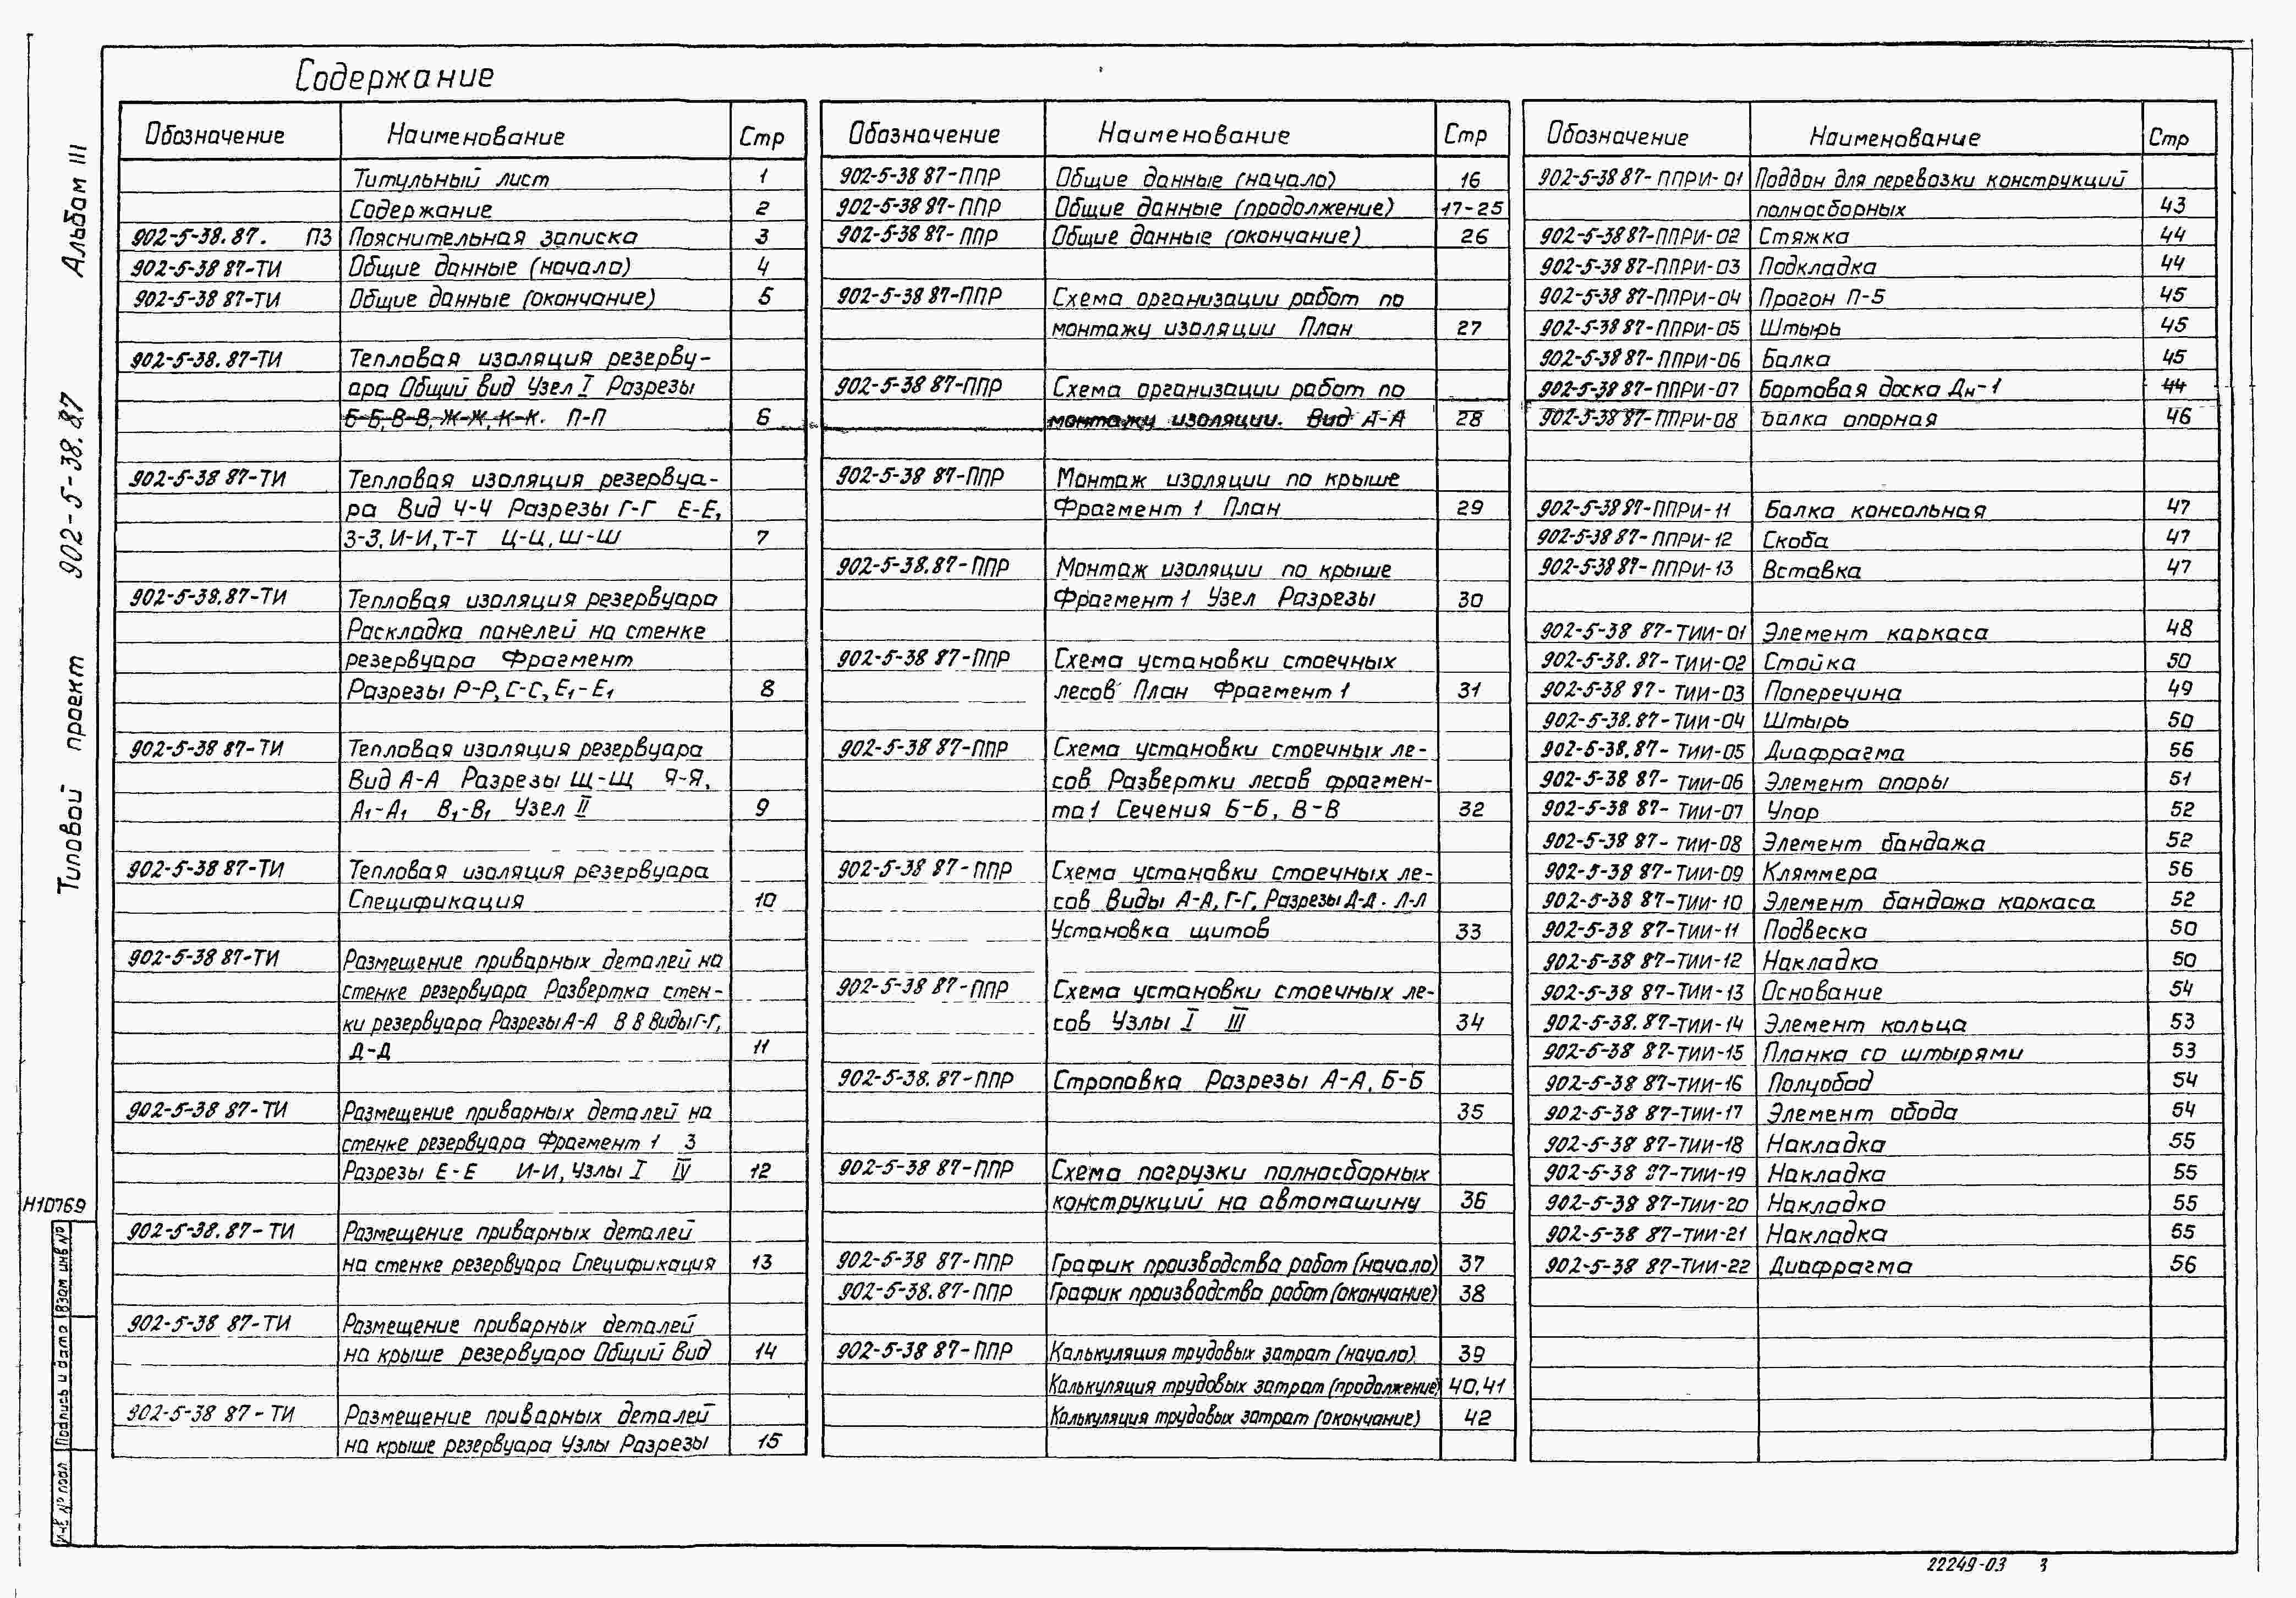 Содержание
Обозначение Наименование Стр
Титульный лист 1
Содержание 2
902-5-38.87. ПЗ Пояснительная записка 3
902-5-38 87-ТИ Общие данные (начало) 4
902-5-38 87-ТИ Общие данные (окончание) 5
902-5-38.87-ТИ Тепловая изоляция резерву-
ара Общий вид Узел I Разрезы
Б-Б, В-В, Ж-Ж, К-К. П-П 6
902-5-38 87-ТИ Тепловая изоляция резервуа-
ра Вид Ч-Ч Разрезы Г-Г Е-Е,
З-З, И-И, Т-Т Ц-Ц, Ш-Ш 7
902-5-38.87-ТИ Тепловая изоляция резервуара
Раскладка панелей на стенке
резервуара Фрагмент
Разрезы Р-Р, С-С, Е1-Е1 8
902-5-38 87-ТИ Тепловая изоляция резервуара
Вид А-А Разрезы Щ-Щ Я-Я,
А1-А1 В1-В1 Узел II 9
902-5-38 87-ТИ Тепловая изоляция резервуара
Спецификация 10
902-5-38 87-ТИ Размещение приварных деталей на
стенке резервуара Развертка стен-
ки резервуара Разрезы А-А В В Виды Г-Г,
Д-Д 11
902-5-38 87-ТИ Размещение приварных деталей на
стенке резервуара Фрагмент 1 3
Разрезы Е-Е И-И, Узлы I IV 12
902-5-38.87-ТИ Размещение приварных деталей
на стенке резервуара Спецификация 13
902-5-38 87-ТИ Размещение приварных деталей
на крыше резервуара Общий вид 14
902-5-38 87-ТИ Размещение приварных деталей
на крыше резервуара Узлы Разрезы 15
Обозначение Наименование Стр
902-5-38 87-ППР Общие данные (начало) 16
902-5-38 87-ППР Общие данные (продолжение) 17-25
902-5-38 87-ППР Общие данные (окончание) 26
902-5-38 87-ППР Схема организации работ по
монтажу изоляции План 27
902-5-38 87-ППР Схема организации работ по
монтажу изоляции. Вид А-А 28
902-5-38 87-ППР Монтаж изоляции по крыше
Фрагмент 1 План 29
902-5-38.87-ППР Монтаж изоляции по крыше
Фрагмент 1 Узел Разрезы 30
902-5-38 87-ППР Схема установки стоечных
лесов План Фрагмент 1 31
902-5-38 87-ППР Схема установки стоечных ле-
сов Развертки лесов фрагмен-
та 1 Сечения Б-Б, В-В 32
902-5-38 87-ППР Схема установки стоечных ле-
сов Виды А-А, Г-Г, Разрезы Д-Д. Л-Л
Установка щитов 33
902-5-38 87-ППР Схема установки стоечных ле-
сов Узлы I III 34
902-5-38.87-ППР Строповка Разрезы А-А, Б-Б
35
902-5-38 87-ППР Схема погрузки полносборных
конструкций на автомашину 36
902-5-38 87-ППР График производства работ (начало) 37
902-5-38.87-ППР График производства работ (окончание) 38
902-5-38 87-ППР Калькуляция трудовых затрат (начало) 39
Калькуляция трудовых затрат (продолжение) 40,41
Калькуляция трудовых затрат (окончание) 42
Обозначение Наименование Стр
902-5-38 87-ППРИ-01 Поддон для перевозки конструкций
полносборных 43
902-5-38 87-ППРИ-02 Стяжка 44
902-5-38 87-ППРИ-03 Подкладка 44
902-5-38 87-ППРИ-04 Прогон П-5 45
902-5-38 87-ППРИ-05 Штырь 45
902-5-38 87-ППРИ-06 Балка 45
902-5-38 87-ППРИ-07 Бортовая доска Дн-1 44
902-5-38 87-ППРИ-08 Балка опорная 46
902-5-38 87-ППРИ-11 Балка консольная 47
902-5-38 87-ППРИ-12 Скоба 47
902-5-38 87-ППРИ-13 Вставка 47
902-5-38 87-ТИИ-01 Элемент каркаса 48
902-5-38.87-ТИИ-02 Стойка 50
902-5-38 87-ТИИ-03 Поперечина 49
902-5-38.87-ТИИ-04 Штырь 50
902-5-38.87-ТИИ-05 Диафрагма 56
902-5-38 87-ТИИ-06 Элемент опоры 51
902-5-38 87-ТИИ-07 Упор 52
902-5-38 87-ТИИ-08 Элемент бандажа 52
902-5-38 87-ТИИ-09 Кляммера 56
902-5-38 87-ТИИ-10 Элемент бандажа каркаса 52
902-5-38 87-ТИИ-11 Подвеска 50
902-5-38 87-ТИИ-12 Накладка 50
902-5-38 87-ТИИ-13 Основание 54
902-5-38.87-ТИИ-14 Элемент кольца 53
902-5-38 87-ТИИ-15 Планка со штырями 53
902-5-38 87-ТИИ-16 Полуобод 54
902-5-38 87-ТИИ-17 Элемент обода 54
902-5-38 87-ТИИ-18 Накладка 55
902-5-38 87-ТИИ-19 Накладка 55
902-5-38 87-ТИИ-20 Накладка 55
902-5-38 87-ТИИ-21 Накладка 55
902-5-38 87-ТИИ-22 Диафрагма 56
Типовой проект 902-5-38.87 Альбом III
Н10769
Инв № подл Подпись и дата Взам инв №
22249-03 3